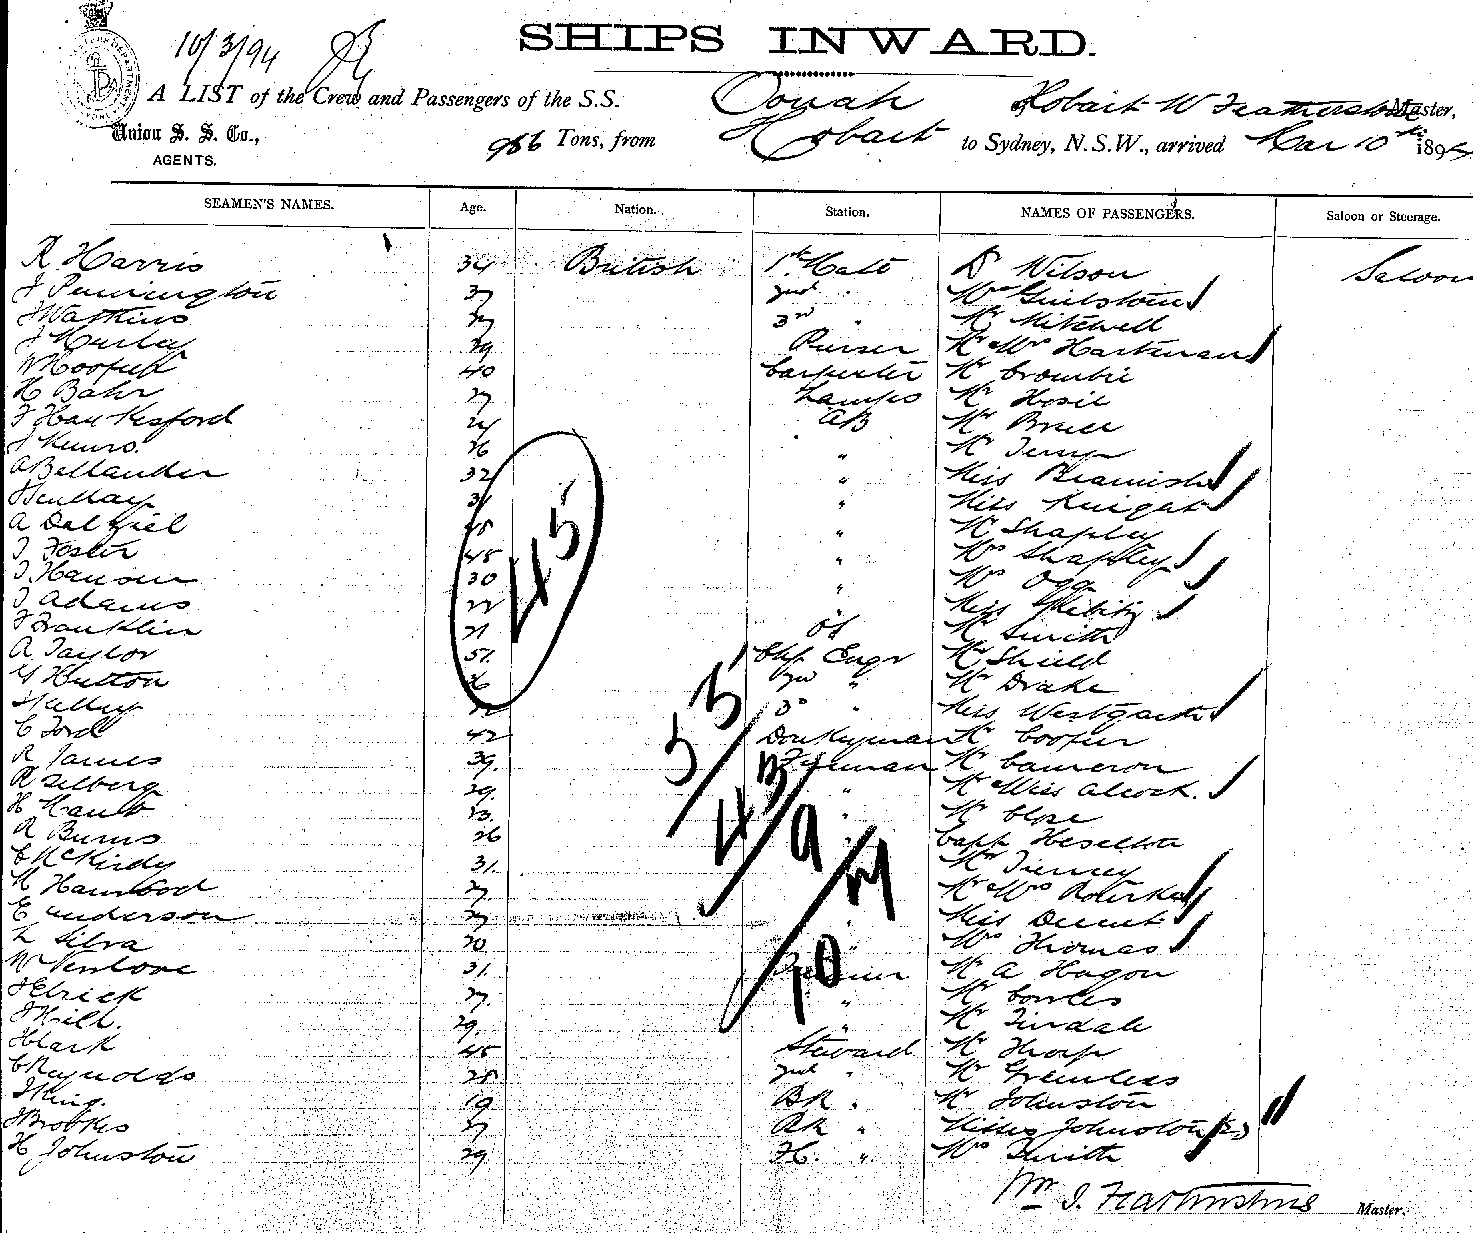 10/3/94
SHIPS INWARD.
A LIST of the Crew and Passengers of the S.S. Oonah Hobart W Featherstone Master.
Union S. S. Co.,
AGENTS.
986 Tons, from Hobart to Sydney, N.S.W., arrived Mar 10th 1894
SEAMEN'S NAMES. Age. Nation. Station. NAMES OF PASSENGERS. Saloon or Steerage.
R Harris 34 British 1st Mate D Wilson Saloon
J Pennington 37 2nd " Mrs
J Watkins 27 3rd " Mr Mitchell
J 29 Purser Mr Mrs Hartman
W Hooper 40 Carpenter Mr Crombie
H Bahr 27 Lamps Mr
J Hay 24 AB Mr Bruce
J Munro. 26 " Mr Terry
A Bellander 32 " Miss Beamish
31 " Miss Knight
A Dalziel 45 " Mr Shapley
J Foster 45 " Mrs Shapley
J. Hanson 30 " Mrs Ogg
J Adams 22 " Miss
J Franklin 21 OS Mr Smith
A Taylor 51. Chf Engr Mr Shield
G Hutton 26 2nd " Mr Drake
3rd " Miss Westgarth
C Ford 42 Donkeyman Mr Cooper
R James 39. Fireman Mr Cameron
R Zelberg 29. " Mr Miss Alcock.
H 23. " Mr Close
R Burns 26 Capt Heselton
C McKirdy 31. Mr Tierney
H Harwood 27. Mr Mrs
E Anderson 27 Miss
L Silva 20 " Mrs Thomas
W 31. Mr A Hagon
J Elrick 27. " Mr Cowles
J Hill. 29. " Mr Tindale
H Clark 45 Steward Mr Thorp
C Reynolds 25 2nd " Mr
J King. 19 BK " Mr Johnston
J Brookes 27 " Misses Johnston (2)
H Johnston 29 " Mrs Smith
45
53
43
9
21
70
Wm J. Featherstone Master.